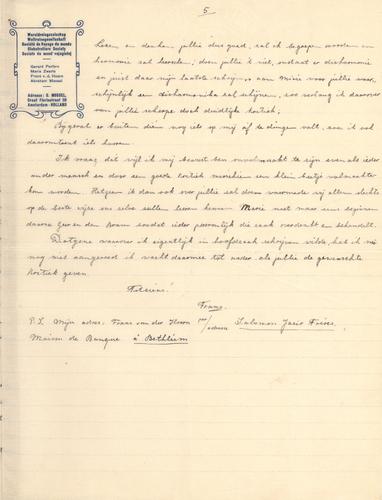 5
Wereldreisgezelschap
Weltreisegesellschaft
Société de Voyage du monde
Globetrotters Society
Societo de mond'vojaĝistoj
Gerard Perfors
Marie Zwarts
Frans v. d. Hoorn
Abraham Mossel
Adresse: G. MOSSEL.
Graaf Florisstraat 20
Amsterdam - HOLLAND
Lezen en denken jullie dus goed, zal ik begrepen worden en
harmonie zal heerschen; doen jullie 't niet, ontstaat er disharmonie
en juist daar mijn laatste schrijven aan Marie voor jullie waar-
schijnlijk een disharmonika zal schijnen, zoo verlang ik daarover
van jullie scherpe doch duidelijke kritiek.
Bijgeval er buiten dien nog iets op mij af te dingen valt, zou ik ook
daaromtrent iets hooren.
Ik vraag dat wijl ik mij bewust ben onvolmaakt te zijn evenals ieder
ander mensch en door een goede kritiek misschien een klein beetje volmaakter
kan worden. Hetgeen ik dan ook voor jullie zal doen waarmede wij allen slechts
op de beste wijze ons zelve zullen leeren kennen. Marie moet maar eens beginnen
daarna Ger en den Bram zoodat ieder persoonlijk die zaak overdenkt en behandelt.
Datgene waarover ik eigentlijk in hoofdzaak schrijven wilde, heb ik nu
nog niet aangeroerd ik wacht daarmee tot nader als jullie de verwachte
kritiek geven.
Frans.
P.S. Mijn adres: Frans van der Hoorn per/adres Salomon Jacir Frères
Maison de Banque à Bethléem